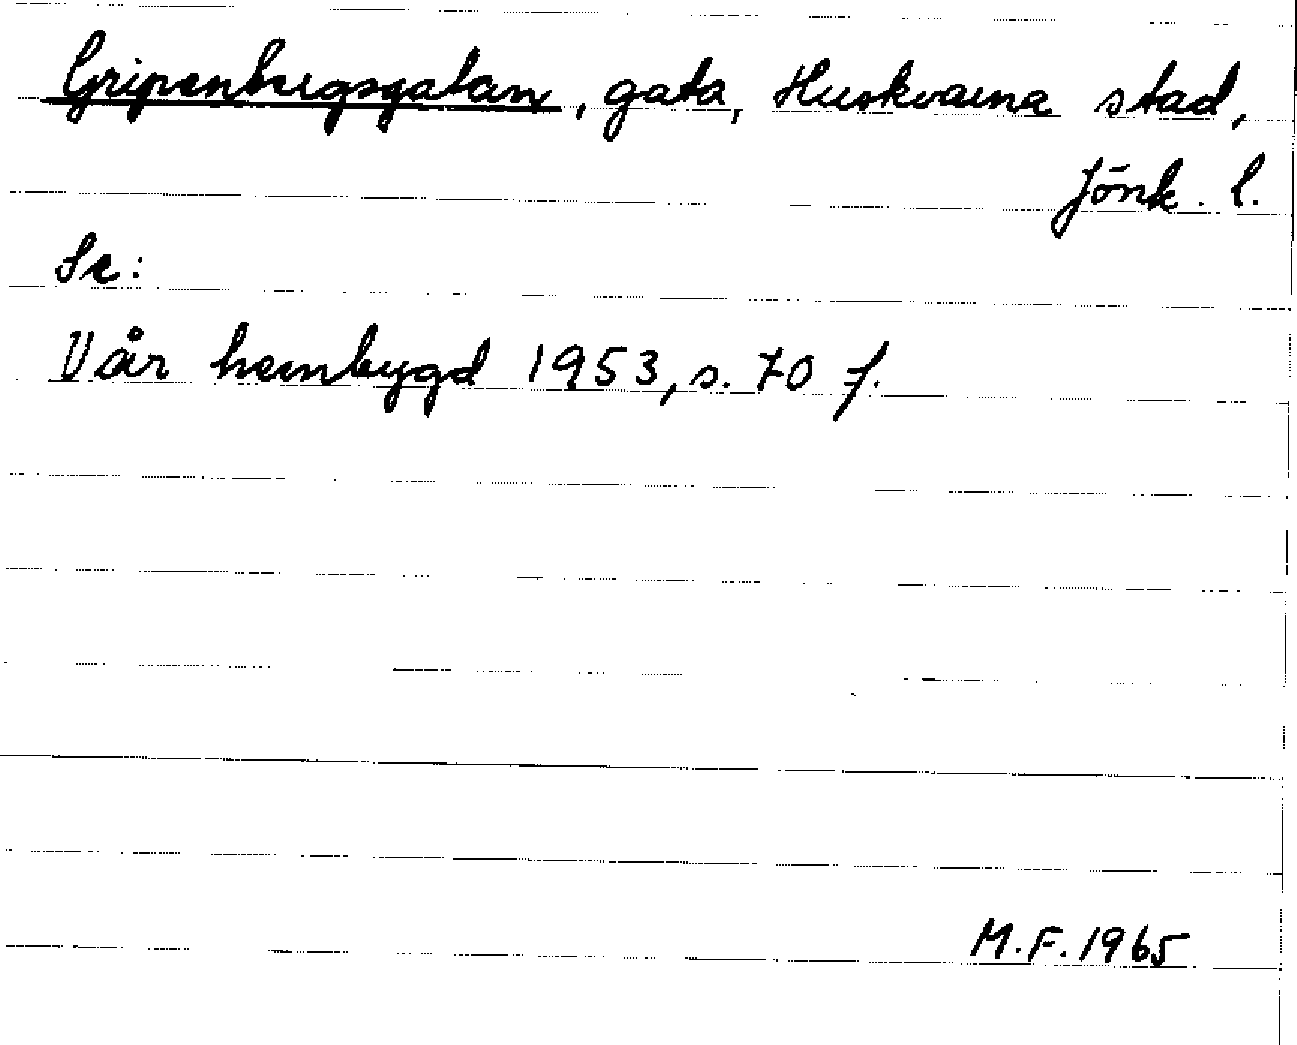 Gripenbergsgatan, gata, Huskvarna stad,
Jönk. l.
Se:
Vår hembygd 1953, s. 70 f.
M.F. 1965